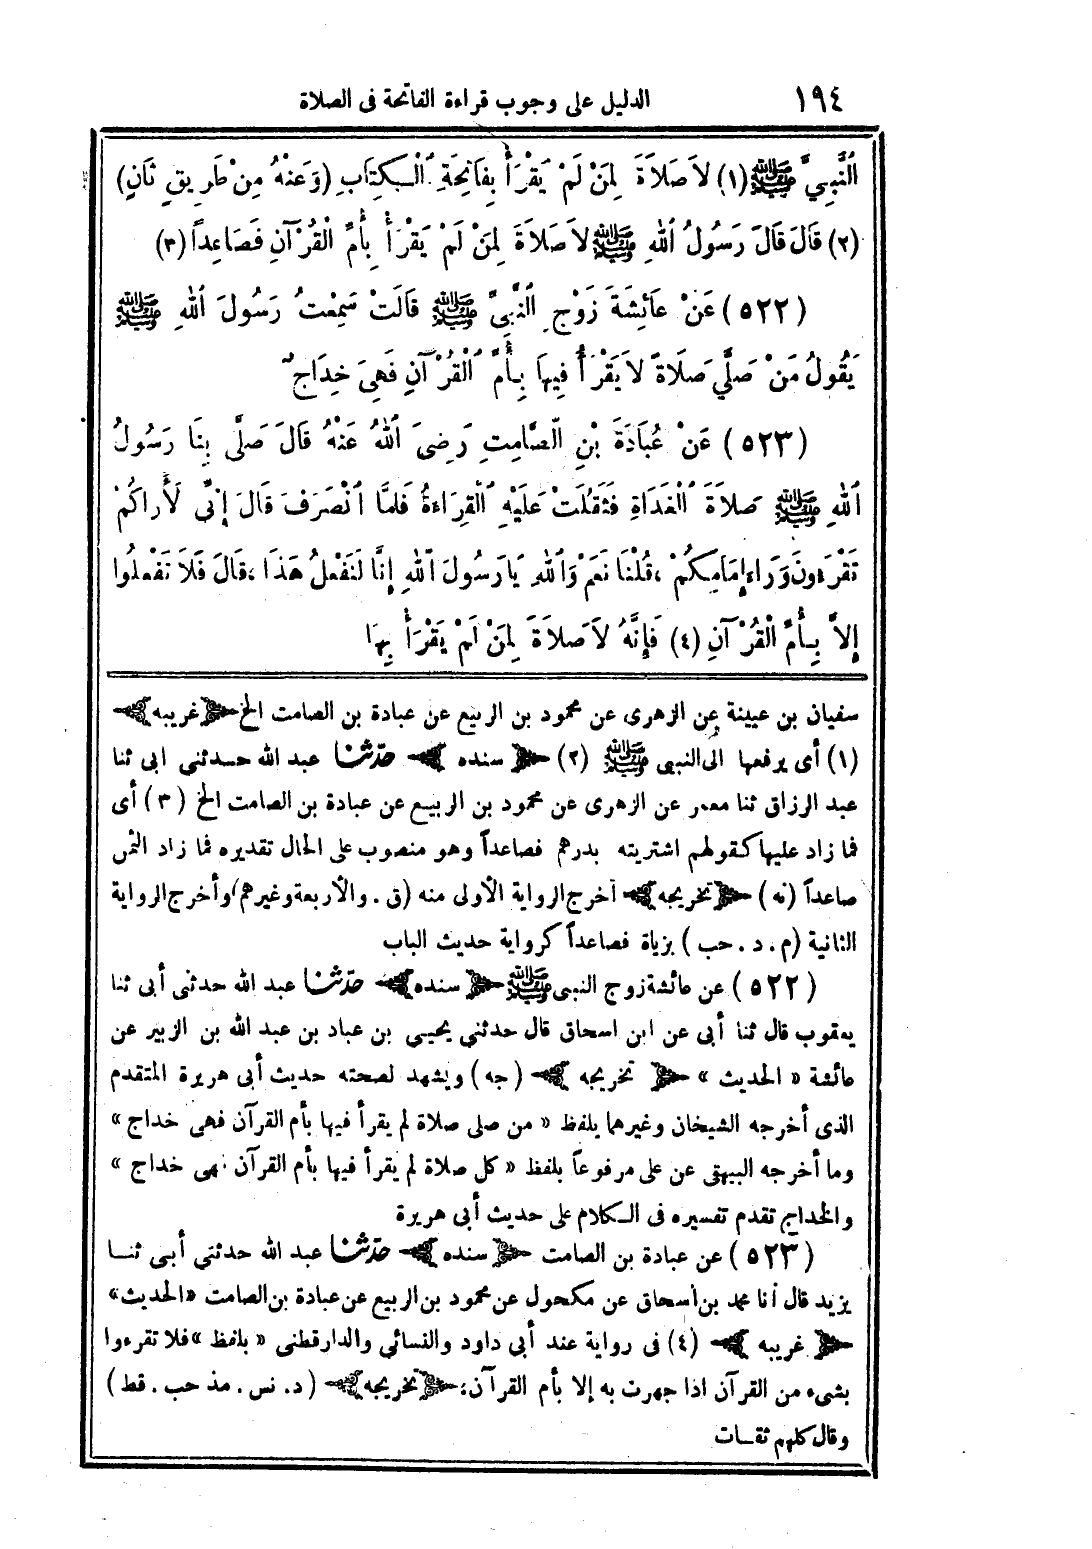 ١٩٤ الدليل على وجوب قراءة الفاتحة فى الصلاة
ٱلنَّبِيَّ ﷺ (١) لاَ صَلاَةَ لِمَنْ لَمْ يَقْرَأْ بِفَاتِحَةِ ٱلْكِتَابِ (وَعَنْهُ مِنْ طَرِيقٍ ثَانٍ)
(٢) قَالَ قَالَ رَسُولُ ٱللهِ ﷺ لاَ صَلاَةَ لِمَنْ لَمْ يَقْرَأْ بِأُمِّ الْقُرْآنِ فَصَاعِداً (٣)
(٥٢٢) عَنْ عَائِشَةَ زَوْجِ ٱلنَّبِيِّ ﷺ قَالَتْ سَمِعْتُ رَسُولَ ٱللهِ ﷺ
يَقُولُ مَنْ صَلَّي صَلَاةً لاَ يَقْرَأُ فِيهَا بِأُمِّ ٱلْقُرْآنِ فَهِىَ خِدَاجٌ
(٥٢٣) عَنْ عُبَادَةَ بْنِ الصَّامِتِ رَضِىَ ٱللهُ عَنْهُ قَالَ صَلَّى بِنَا رَسُولُ
ٱللهِ ﷺ صَلاَةَ ٱلْغَدَاةِ فَثَقُلَتْ عَلَيْهِ ٱلْقِرَاءَةُ فَلَمَّا ٱنْصَرَفَ قَالَ إِنِّى لَأَرَاكُمْ
تَقْرَءُونَ وَرَاءَ إِمَامِكُمْ ، قُلْنَا نَعَمْ وَٱللهِ يَا رَسُولَ ٱللهِ إِنَّا لَنَفْعَلُ هَذَا ، قَالَ فَلاَ تَفْعَلُوا
إِلاَّ بِأُمِّ الْقُرْآنِ (٤) فَإِنَّهُ لاَ صَلاَةَ لِمَنْ لَمْ يَقْرَأْ بِهَا
سفيان بن عيينة عن الزهرى عن محمود بن الربيع عن عبادة بن الصامت الخ ﴿غريبه﴾
(١) أى يرفعها الى النبى ﷺ (٢) ﴿سنده﴾ حدّثنا عبد الله حدثني ابى ثنا
عبد الرزاق ثنا معمر عن الزهرى عن محمود بن الربيع عن عبادة بن الصامت الخ (٣) أى
فما زاد عليها كقولهم اشتريته بدرهم فصاعداً وهو منصوب على الحال تقديره فما زاد الثمن
صاعداً (نه) ﴿تخريجه﴾ أخرج الرواية الأولى منه (ق . والأربعة وغيرهم) وأخرج الرواية
الثانية (م . د . حب) بزياة فصاعداً كرواية حديث الباب
(٥٢٢) عن عائشة زوج النبى ﷺ ﴿سنده﴾ حدّثنا عبد الله حدثنى أبى ثنا
يعقوب قال ثنا أبى عن ابن اسحاق قال حدثني يحيى بن عباد بن عبد الله بن الزبير عن
عائشة « الحديث » ﴿تخريجه﴾ (جه) ويشهد لصحته حديث أبى هريرة المتقدم
الذى أخرجه الشيخان وغيرهما بلفظ « من صلى صلاة لم يقرأ فيها بأم القرآن فهى خداج »
وما أخرجه البيهقى عن على مرفوعاً بلفظ « كل صلاة لم يقرأ فيها بأم القرآن فهى خداج »
والخداج تقدم تفسيره فى الكلام على حديث أبى هريرة
(٥٢٣) عن عبادة بن الصامت ﴿سنده﴾ حدّثنا عبد الله حدثني أبى ثنا
يزيد قال أنا محمد بن اسحاق عن مكحول عن محمود بن الربيع عن عبادة بن الصامت «الحديث»
﴿غريبه﴾ (٤) فى رواية عند أبى داود والنسائى والدارقطنى « بلفظ » فلا تقرءوا
بشىء من القرآن اذا جهرت به إلا بأم القرآن ؛ ﴿تخريجه﴾ (د . نس . مذ حب . قط)
وقال كلهم ثقات